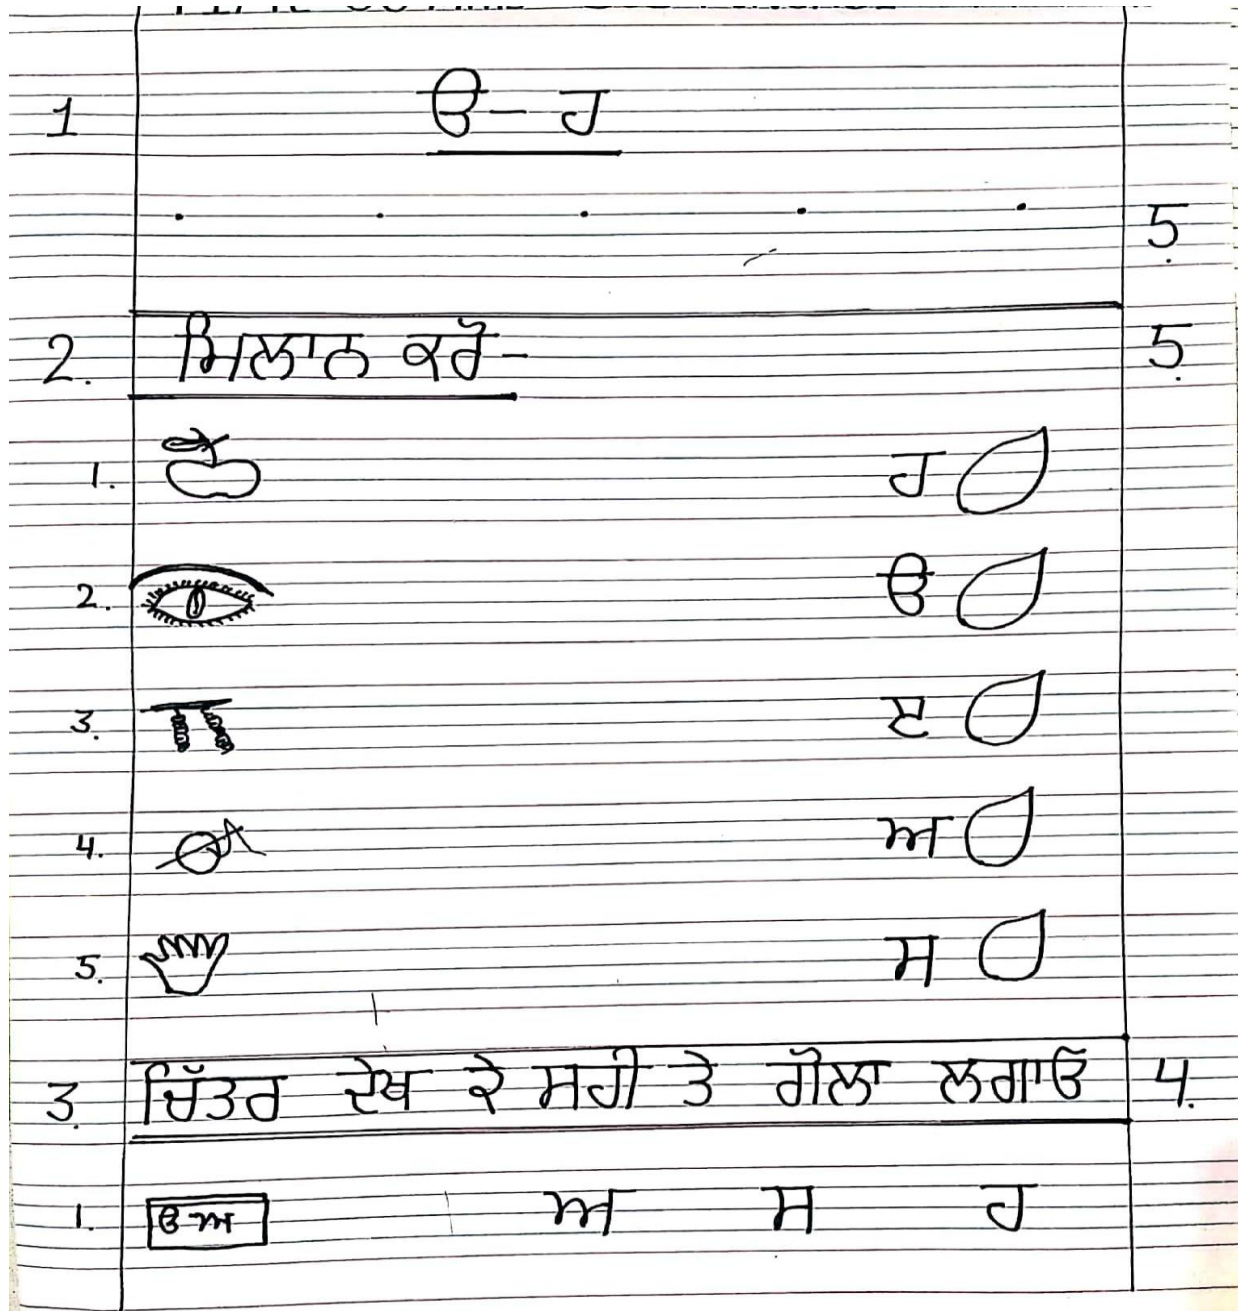 1 ੳ - ਹ
. . . . . 5.
2. ਮਿਲਾਨ ਕਰੋ - 5.
1. ਹ
2. ੳ
3. ੲ
4. ਅ
5. ਸ
3. ਚਿੱਤਰ ਦੇਖ ਕੇ ਸਹੀ ਤੇ ਗੋਲਾ ਲਗਾਓ 4.
1. ੳ ਅ ਅ ਸ ਹ